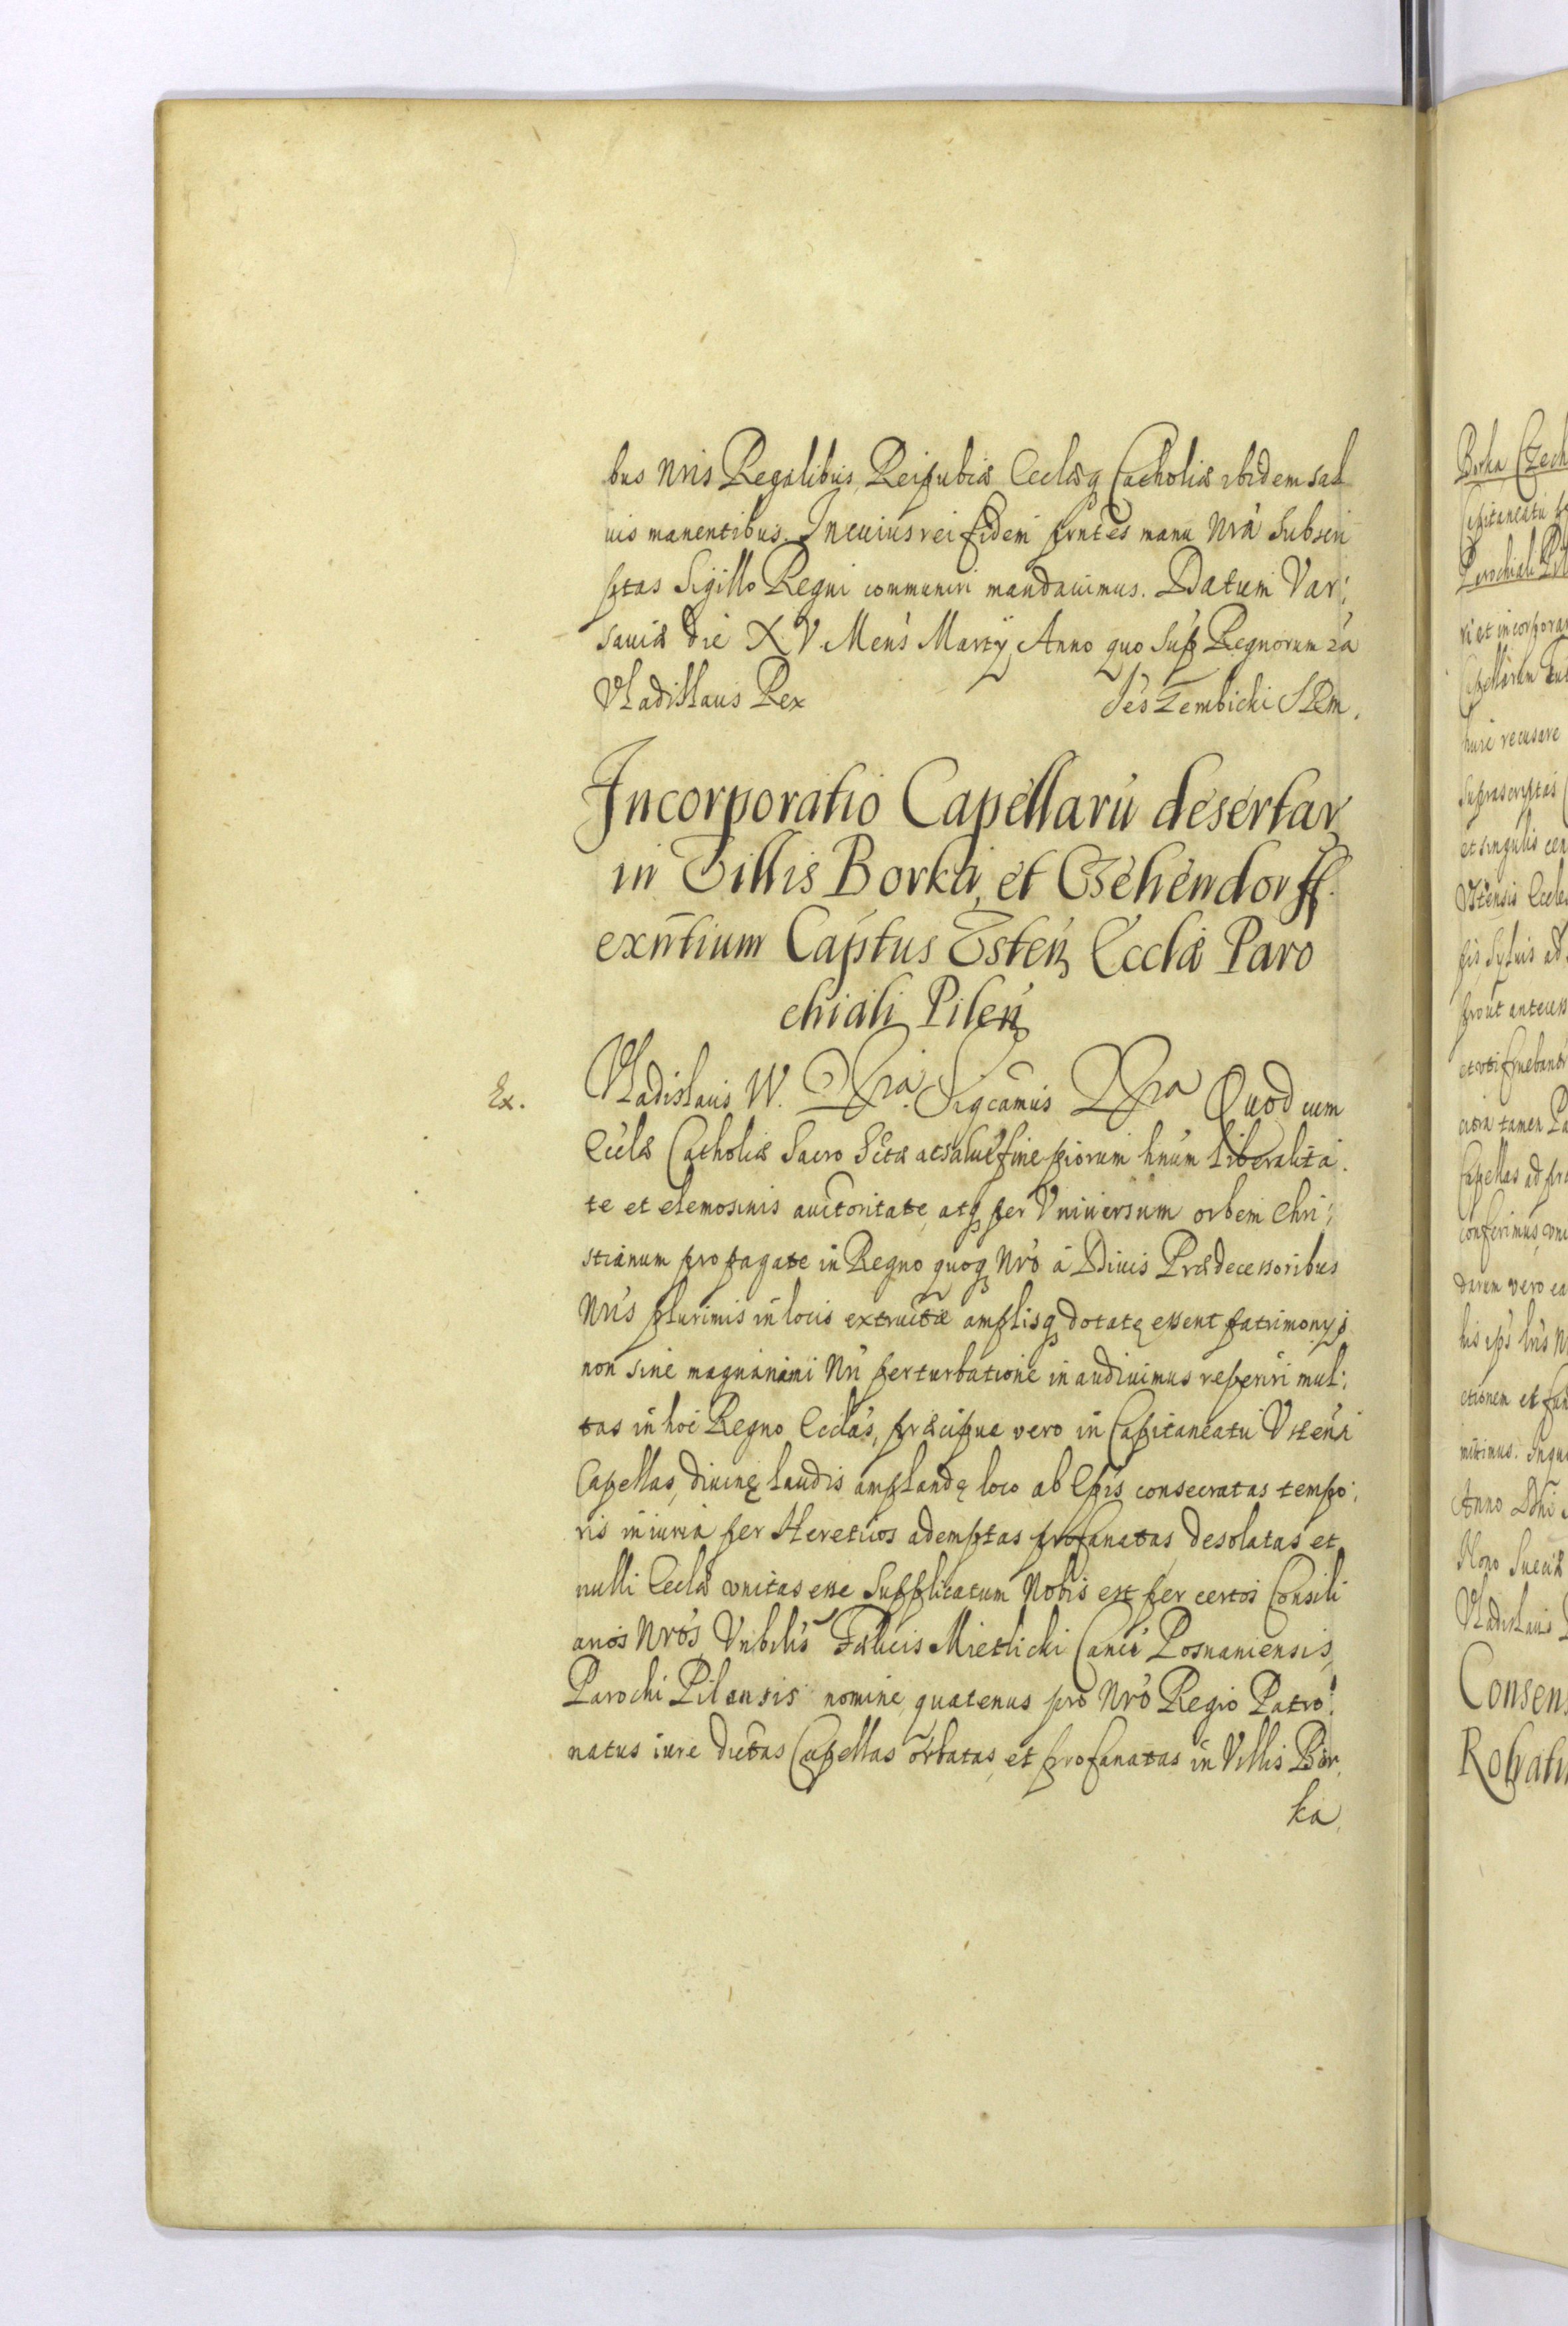 bus Nris Regalibus, Reipubiæ Ecclæq Catholiæ ibidem sal
uis manentibus. In cuius rei fidem prntes manu Nrâ subscri
ptas Sigillo Regni communiri mandauimus. Datum Var:
sauiæ die XV. Mens Martÿ Anno quo sup Regnorum ra
Vladislaus Rex
Zembicki SRM.
Incorporatio Capellarū desertar
in Villis Borka, et Czehendorff.
exñtium Captus Vsteñ Ecclæ Paro
chiali Pileñ
Ex.
Vladislaus IV. Dgra. Sigcamus Dgra Quod cum
Eccłæ Catholiæ Sacro Sctæ ac salue fine piorum hnum liberalita.
te et elemosinis auctoritate, atq per Vniuersum orbem Chri:
stianum propagate in Regno quoq Nrô â Diuis Prædecessoribus
Nris plurimis in locis extructæ amplisq dotatę essent patrimonys
non sine magna animi Nri perturbatione inaudiuimus reperiri mul:
tas in hoc Regno Ecclas, præcipue vero in Capitaneatu Vstensi
Capellas, diuinę laudis amplandę loco ab Epis consecratas tempo:
ris iniuria per Hereticos ademptas profanatas, desolatas et
nulli Ecclæ vnitas esse Supplicatum Nobis est per certos Consili
arios Nros, Vnbilis Fælicis Mietlicki Canci Posnaniensis,
Parochi Pilensis nomine, quatenus pro Nrô Regio Patro:
natus iure dictas Capellas orbatas, et profanatas in Villis Bor,
ka,
Borka Czech
Capitaneatu
Parochiali Pil
ri et incorporar
Capellarum
huic recusare
Suprascriptas
et singulis cen
Vstensis Eccles
pis syluis ad
prout anteces
et vti fruebant
citra tamen Pa
Capellas ad pre
conferimus, vni
darum vero ea
his ips lris N
ctionem et fun
nitimus. In qu
Anno Dni
Nono Sueciæ
Vladislaus
Consens